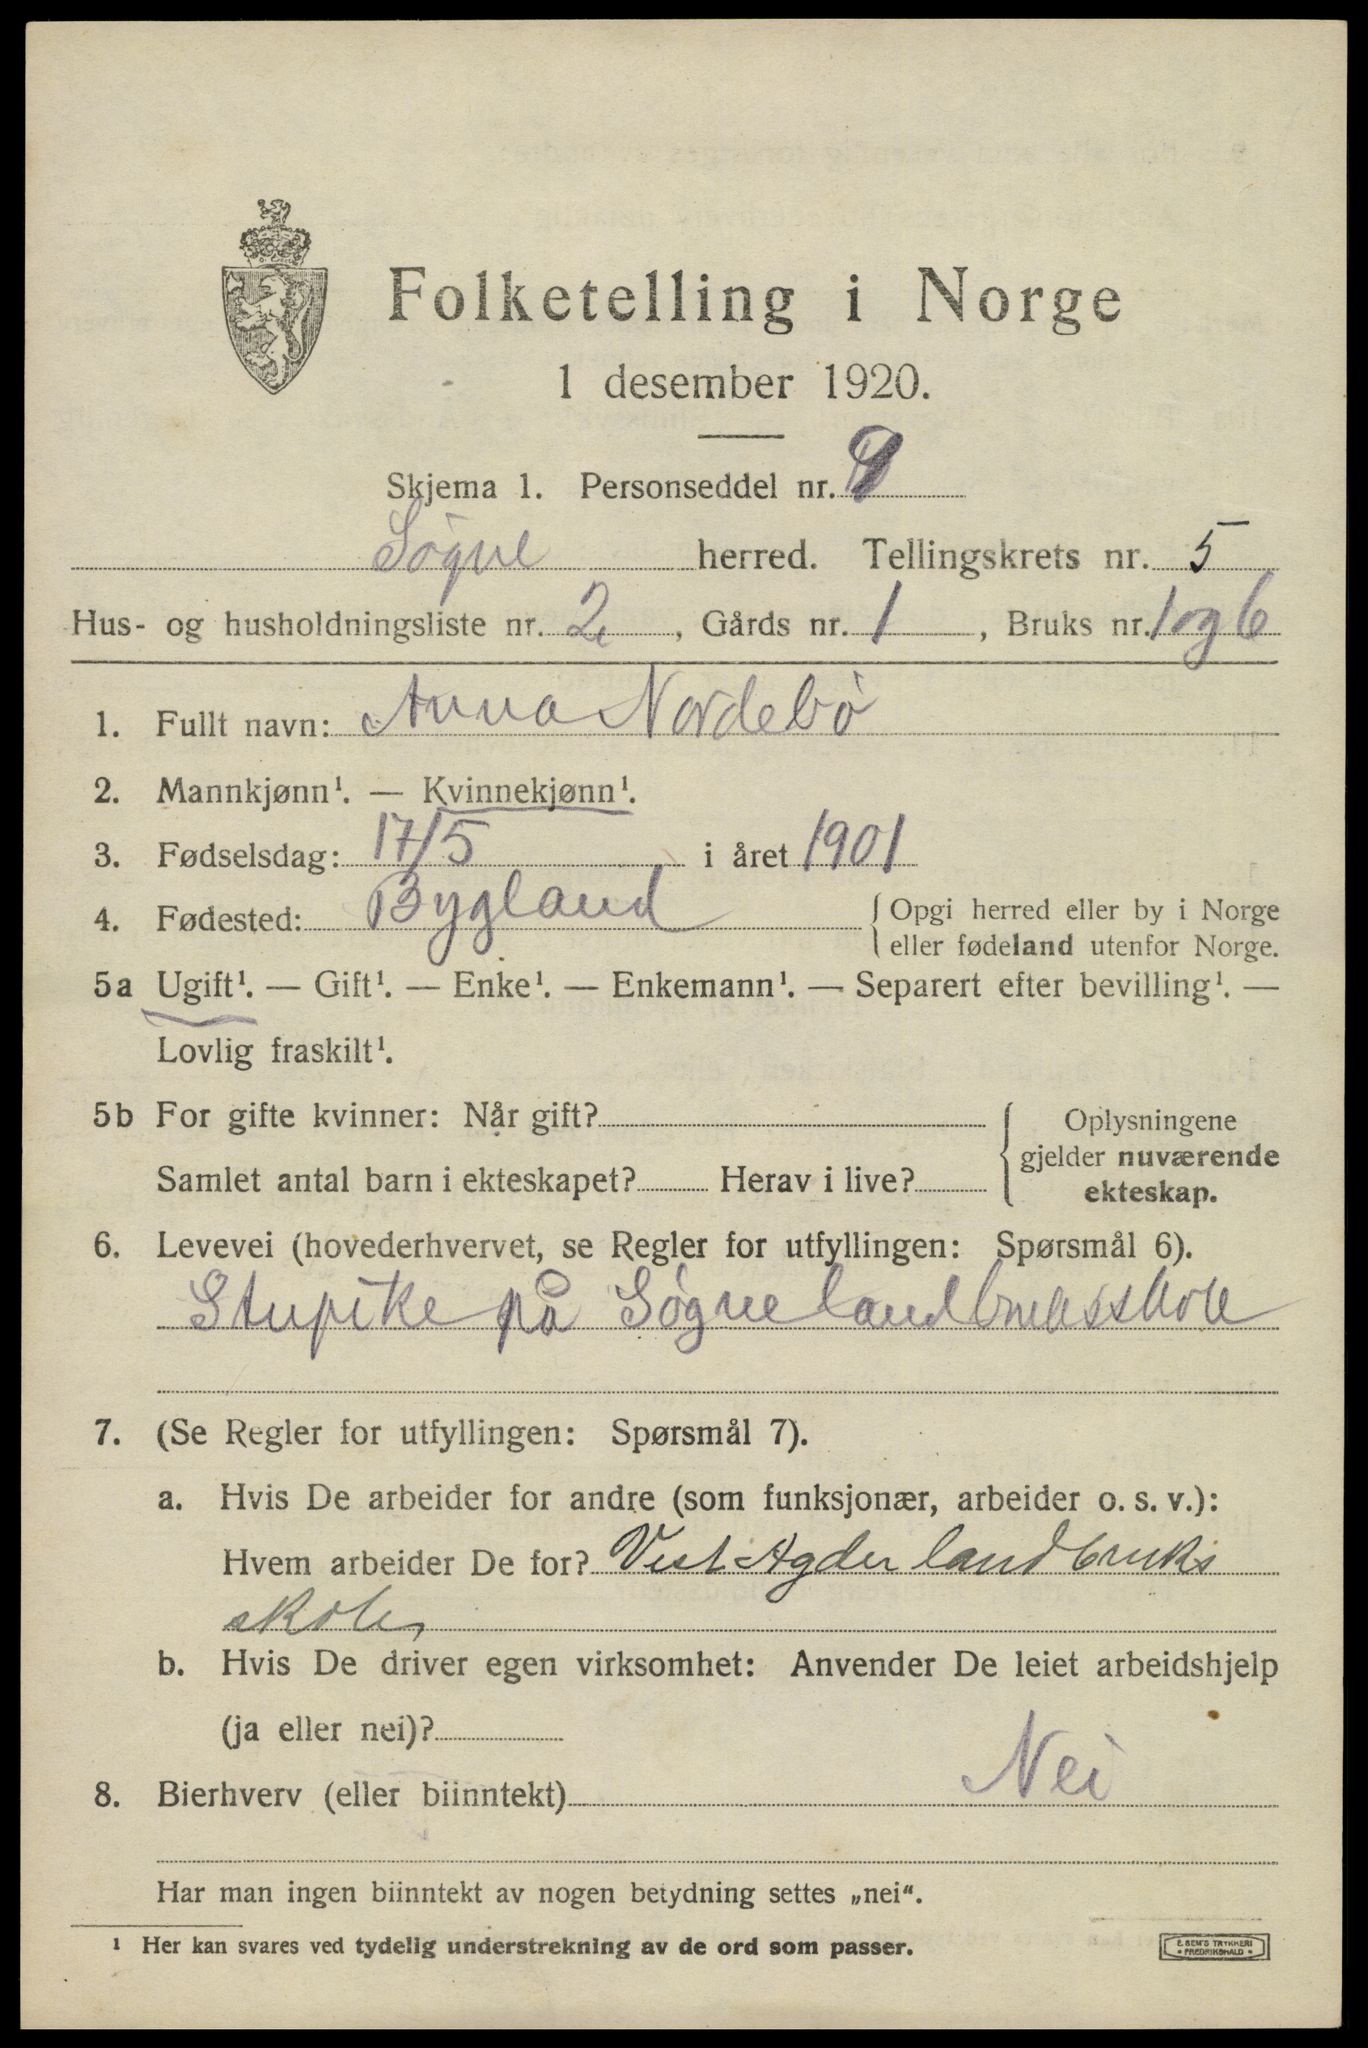 Folketelling i Norge
1 desember 1920.
Skjema 1. Personseddel nr.
Søgne herred. Tellingskrets nr. 5
Hus- og husholdningsliste nr. 2, Gårds nr. 1, Bruks nr. 1 og 6
1. Fullt navn: Anna Nordebø
2. Mannkjønn¹. — Kvinnekjønn¹.
3. Fødselsdag: 17/5 i året 1901
4. Fødested: Bygland {Opgi herred eller by i Norge
eller fødeland utenfor Norge.
5a Ugift¹. — Gift¹. — Enke¹. — Enkemann¹. — Separert efter bevilling¹. —
Lovlig fraskilt¹.
5b For gifte kvinner: Når gift? Oplysningene
gjelder nuværende
Samlet antal barn i ekteskapet? Herav i live? ekteskap.
6. Levevei (hovederhvervet, se Regler for utfyllingen: Spørsmål 6).
Stupike på Søgne landbruksskole
7. (Se Regler for utfyllingen: Spørsmål 7).
a. Hvis De arbeider for andre (som funksjonær, arbeider o. s. v.):
Hvem arbeider De for? Vest Agder landbruks
skole,
b. Hvis De driver egen virksomhet: Anvender De leiet arbeidshjelp
(ja eller nei)?
8. Bierhverv (eller biinntekt) Nei
Har man ingen biinntekt av nogen betydning settes „nei“.
¹ Her kan svares ved tydelig understrekning av de ord som passer.
E. SEM'S TRYKKERI
• FREDRIKSHALD •